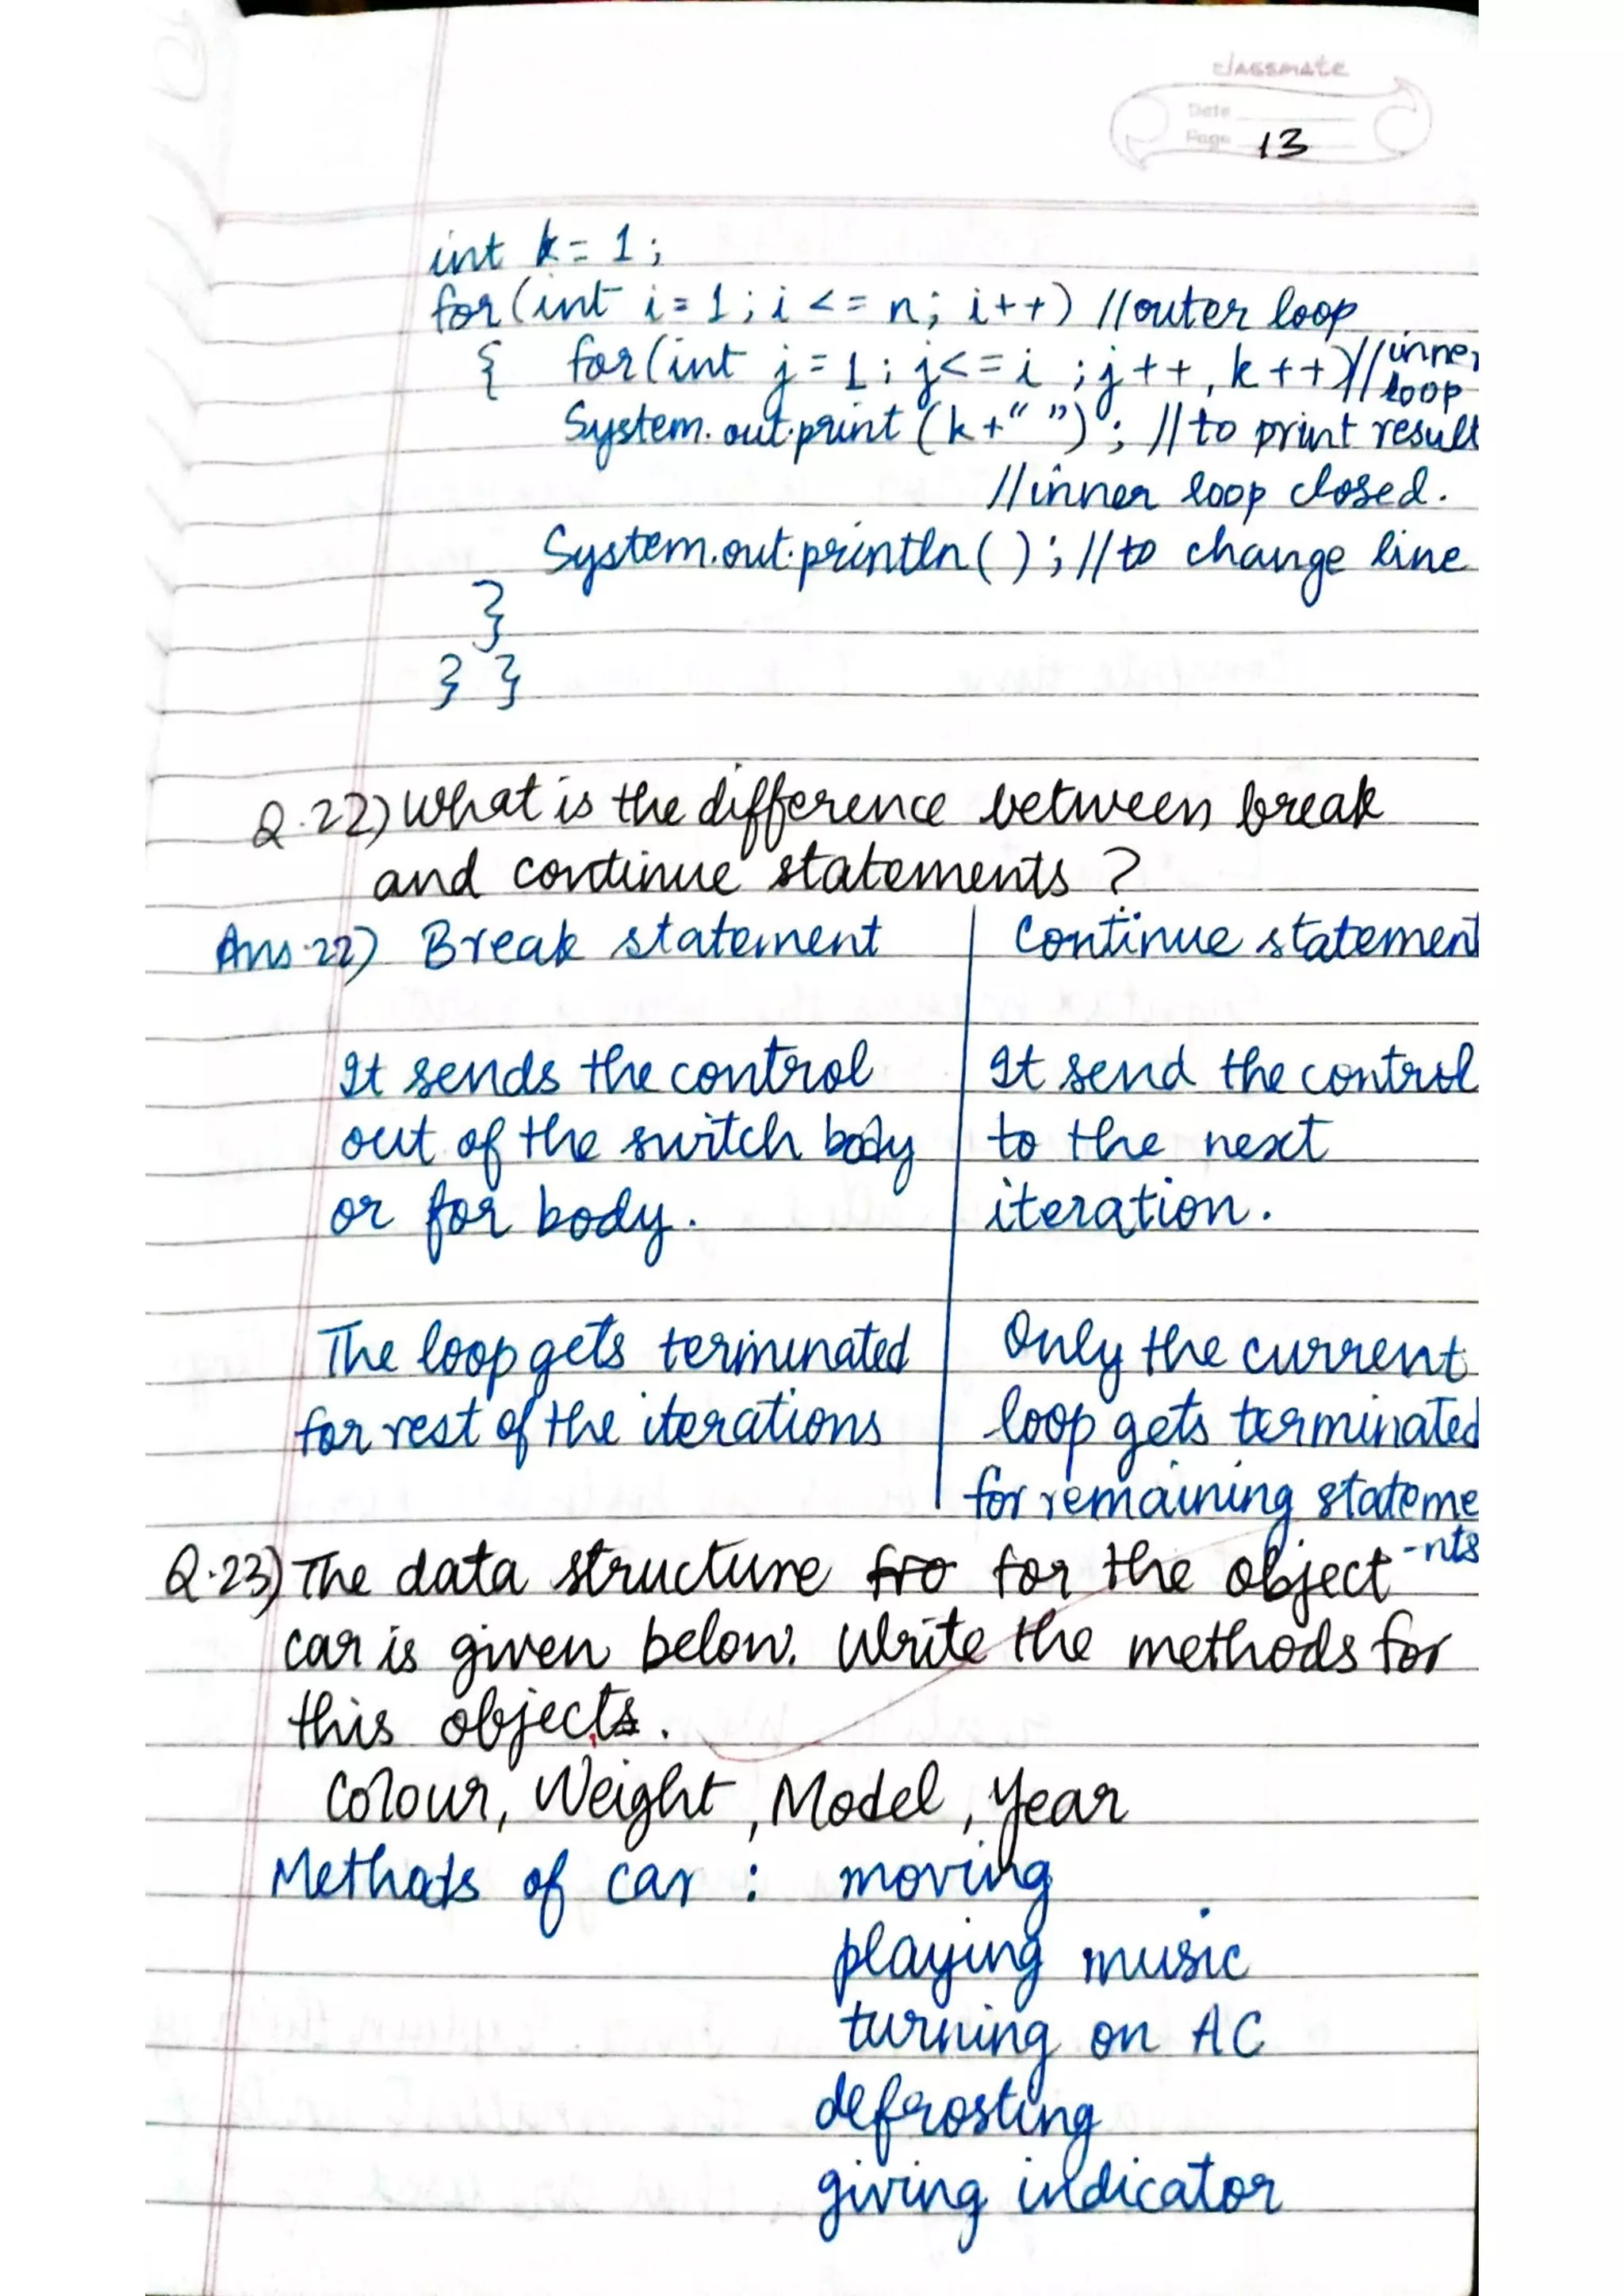 classmate
Date
Page 13
int k = 1;
for(int i = 1; i <= n; i++) //outer loop
{ for(int j = 1; j <= i ; j++, k++) //inner
loop
System.out.print (k+" "); //to print result
//inner loop closed.
System.out.println( ); //to change line
}
} }
Q.22) What is the difference between break
and continue statements ?
Ans.22) Break statement
It sends the control
out of the switch body
or for body.
The loop gets terminated
for rest of the iterations
Continue statement
It send the control
to the next
iteration.
Only the current
loop gets terminated
for remaining stateme
-nts
Q.23) The data structure fro for the object
car is given below. Write the methods for
this objects.
Colour, Weight, Model, Year
Methods of car : moving
playing music
turning on AC
defrosting
giving indicator